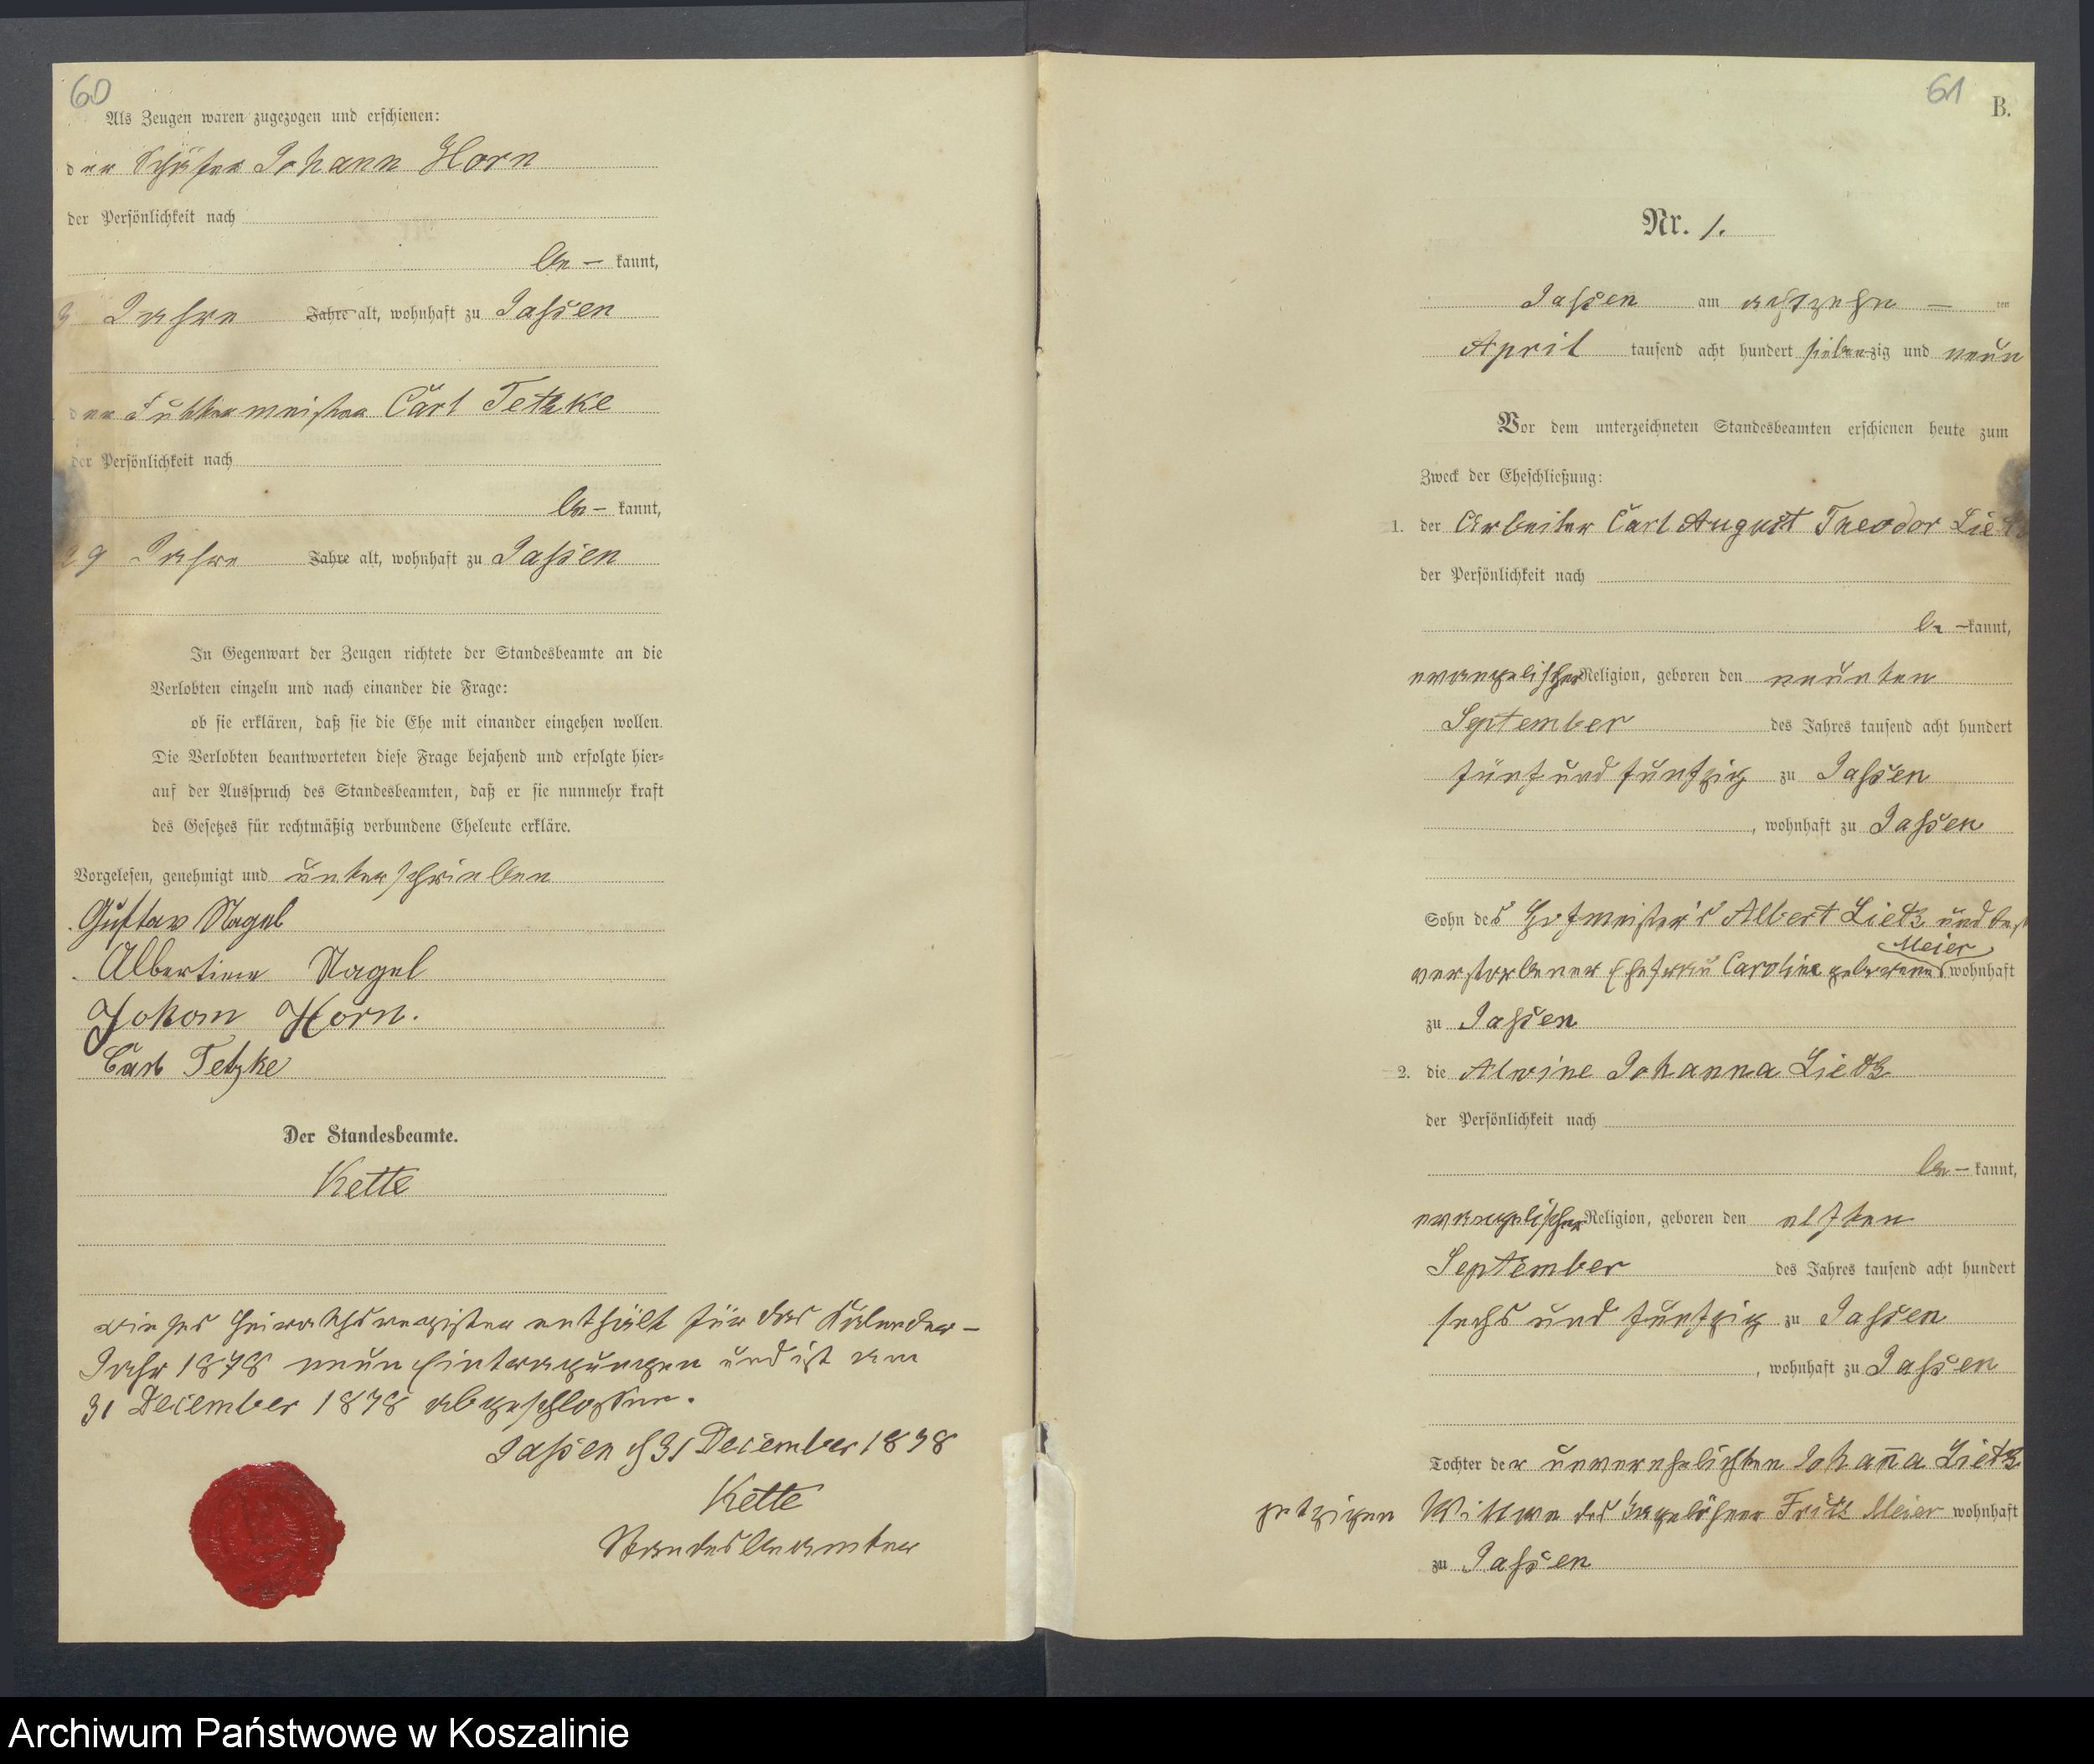 60
Als Zeugen waren zugezogen und erschienen:
der Schäfer Johann Horn
der Persönlichkeit nach
be – kannt,
Jahre Jahre alt, wohnhaft zu Jassen
der Futtermeister Carl Tetzke
der Persönlichkeit nach
be – kannt,
29 Jahre Jahre alt, wohnhaft zu Jassen
In Gegenwart der Zeugen richtete der Standesbeamte an die
Verlobten einzeln und nach einander die Frage:
ob sie erklären, daß sie die Ehe mit einander eingehen wollen.
Die Verlobten beantworteten diese Frage bejahend und erfolgte hier-
auf der Ausspruch des Standesbeamten, daß er sie nunmehr kraft
des Gesetzes für rechtmäßig verbundene Eheleute erkläre.
Vorgelesen, genehmigt und unterschrieben
Gustav Nagel
Albertine Nagel
Johan Horn.
Carl Tetzke
Der Standesbeamte.
Kette
Dieses Heirathsregister enthält für das Kalender-
Jahr 1878 neun Eintragungen und ist am
31 December 1878 abgeschlossen.
Jassen d 31 December 1878
Kette
Standesbeamter
61
B.
Nr. 1.
Jassen am achtzehn – ten
April tausend acht hundert siebenzig und neun
Vor dem unterzeichneten Standesbeamten erschienen heute zum
Zweck der Eheschließung:
1. der Arbeiter Carl August Theodor Lietz
der Persönlichkeit nach
be – kannt,
evangelischer Religion, geboren den neunten
September des Jahres tausend acht hundert
fünf und funfzig zu Jassen
, wohnhaft zu Jassen
Sohn des Hofmeister's Albert Lietz und
Meier
verstorbener Ehefrau Caroline geborene wohnhaft
zu Jassen
2. die Alwine Johanna Lietz
der Persönlichkeit nach
be – kannt,
evangelischer Religion, geboren den elften
September des Jahres tausend acht hundert
sechs und funfzig zu Jassen
, wohnhaft zu Jassen
Tochter der unverehelichten Johanna Lietz
jetzigen Wittwe des Tagelöhner Fritz Meier wohnhaft
zu Jassen
Archiwum Państwowe w Koszalinie